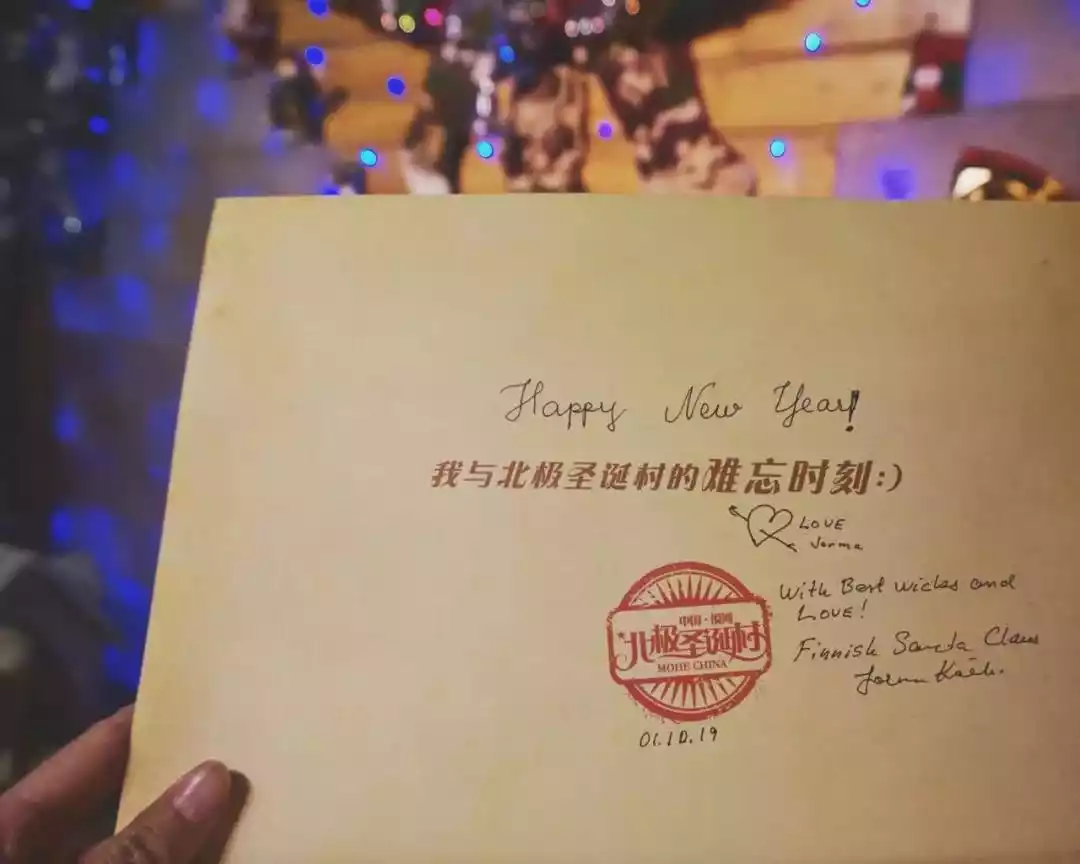 Happy New Year!
我与北极圣诞村的难忘时刻:)
LOVE
Jorma
With Best wickes and
LOVE!
Finnish Santa Claus
Jorma
中国·漠河
北极圣诞村
MOHE CHINA
01.10.19